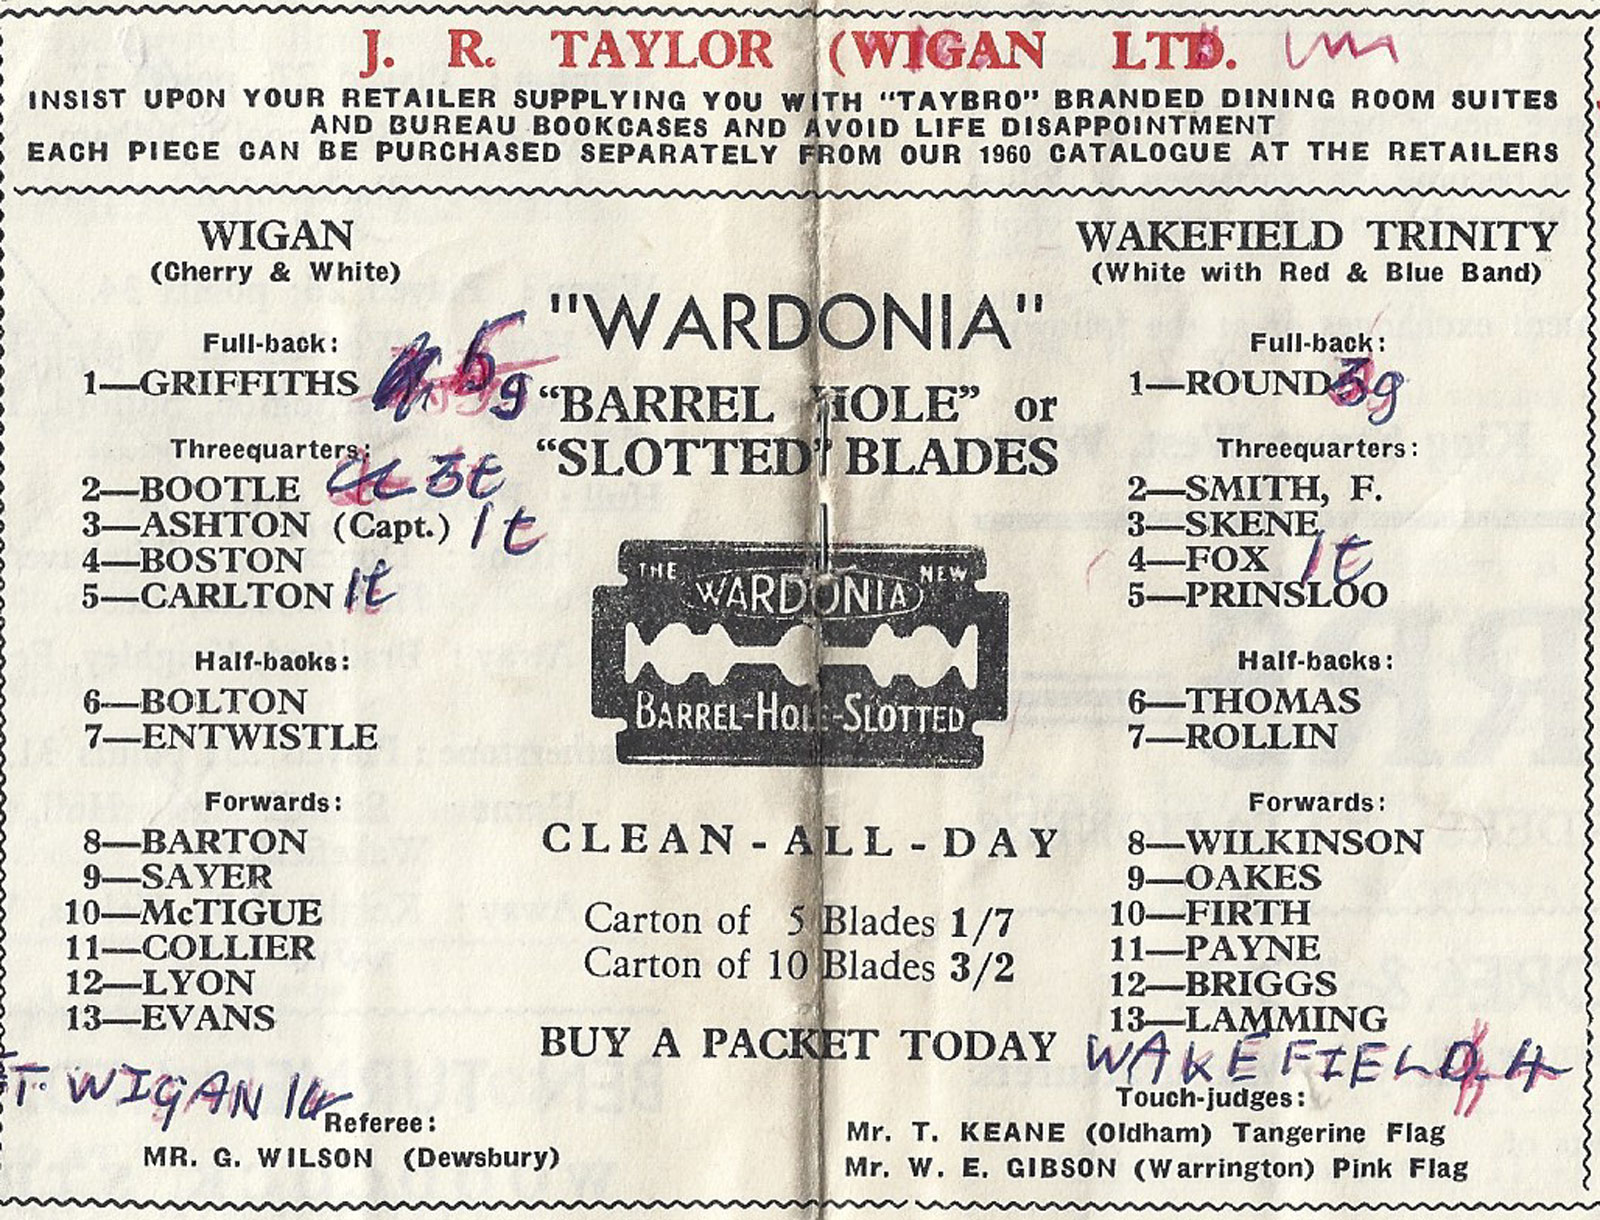 J. R. TAYLOR (WIGAN LTD.
INSIST UPON YOUR RETAILER SUPPLYING YOU WITH "TAYBRO" BRANDED DINING ROOM SUITES
AND BUREAU BOOKCASES AND AVOID LIFE DISAPPOINTMENT
EACH PIECE CAN BE PURCHASED SEPARATELY FROM OUR 1960 CATALOGUE AT THE RETAILERS
WIGAN
(Cherry & White)
Full-back:
1—GRIFFITHS 5g
Threequarters:
2—BOOTLE 3t
3—ASHTON (Capt.) 1t
4—BOSTON
5—CARLTON 1t
Half-backs:
6—BOLTON
7—ENTWISTLE
Forwards:
8—BARTON
9—SAYER
10—McTIGUE
11—COLLIER
12—LYON
13—EVANS
T. WIGAN
Referee:
MR. G. WILSON (Dewsbury)
"WARDONIA"
"BARREL HOLE" or
"SLOTTED" BLADES
THE WARDONIA NEW
BARREL-HOLE-SLOTTED
CLEAN-ALL-DAY
Carton of 5 Blades 1/7
Carton of 10 Blades 3/2
BUY A PACKET TODAY
WAKEFIELD TRINITY
(White with Red & Blue Band)
Full-back:
1—ROUND 3g
Threequarters:
2—SMITH, F.
3—SKENE
4—FOX 1t
5—PRINSLOO
Half-backs:
6—THOMAS
7—ROLLIN
Forwards:
8—WILKINSON
9—OAKES
10—FIRTH
11—PAYNE
12—BRIGGS
13—LAMMING
WAKEFIELD
Touch-judges:
Mr. T. KEANE (Oldham) Tangerine Flag
Mr. W. E. GIBSON (Warrington) Pink Flag